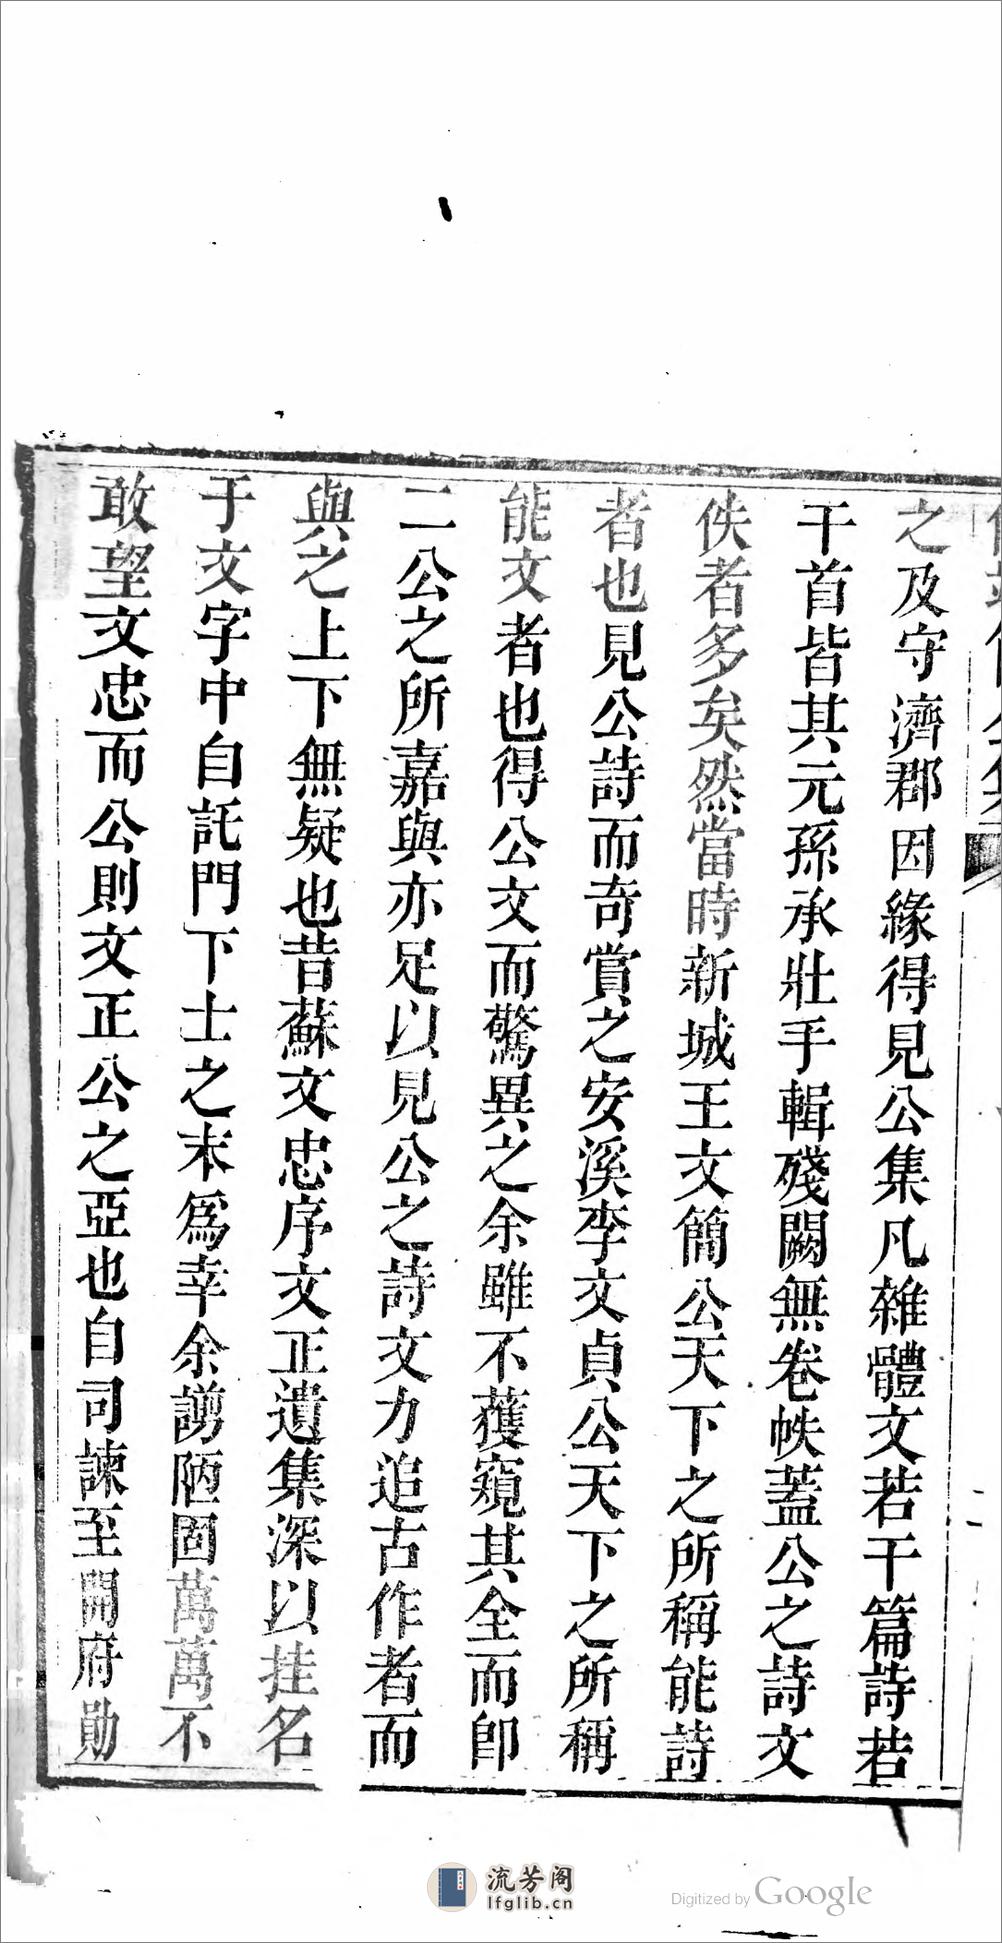 之及守濟郡因緣得見公集凡雜體文若干篇詩若
干首皆其元孫承壯手輯殘闕無卷帙蓋公之詩文
佚者多矣然當時新城王文簡公天下之所稱能詩
者也見公詩而奇賞之安溪李文貞公天下之所稱
能文者也得公文而驚異之余雖不獲窺其全而卽
二公之所嘉與亦足以見公之詩文力追古作者而
與之上下無疑也昔蘇文忠序文正遺集深以挂名
于文字中自託門下士之末爲幸余譾陋固萬萬不
敢望文忠而公則文正公之亞也自司諫至開府勛
流芳阁
lfglib.cn
Digitized by Google